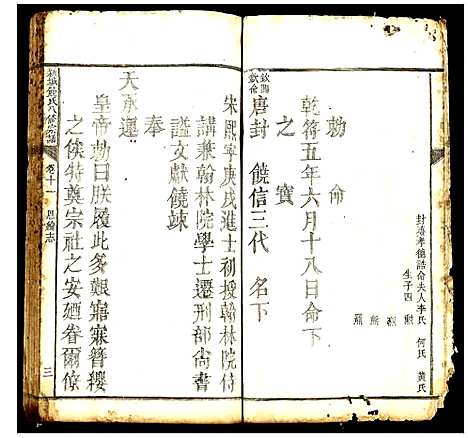 封靖孝德誥命夫人李氏 何氏 黃氏
生子四
勅命
之寶
乾符五年六月十八日命下
欽賜
欽命
唐封 饒信三代 名下
宋熙寧庚戌進士初授翰林院侍
講兼翰林院學士遷刑部尚書
謚文獻饒竦
奉
天承運
皇帝勅曰朕履此多艱寤寐簪纓
之俟特奠宗社之安廼眷爾僚
氏八修宗譜
卷十一
恩綸志
三